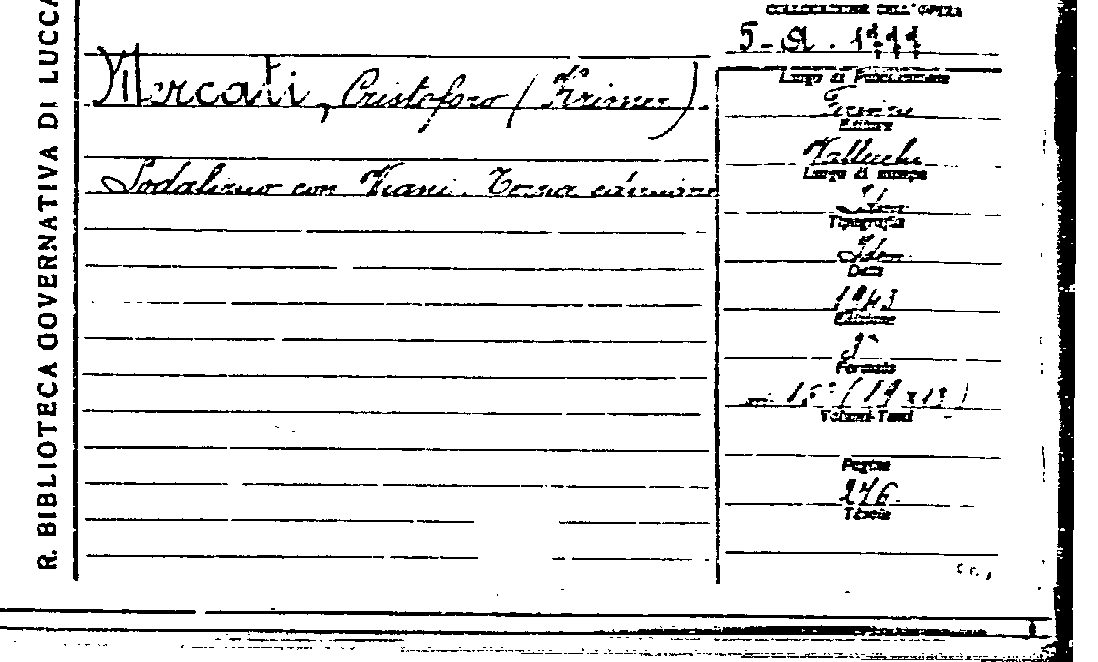 R. BIBLIOTECA GOVERNATIVA DI LUCCA
COLLOCAZIONE DELL'OPERA
Mercati, Cristoforo (Krimer)
Sodalizio con Viani.
Luogo di Pubblicazione
Firenze
Editore
Vallecchi
Luogo di stampa
Idem
Tipografia
Idem
Data
1943
Edizione
Formato
16° (19x13)
Volumi-Tomi
Pagine
276
Tavole